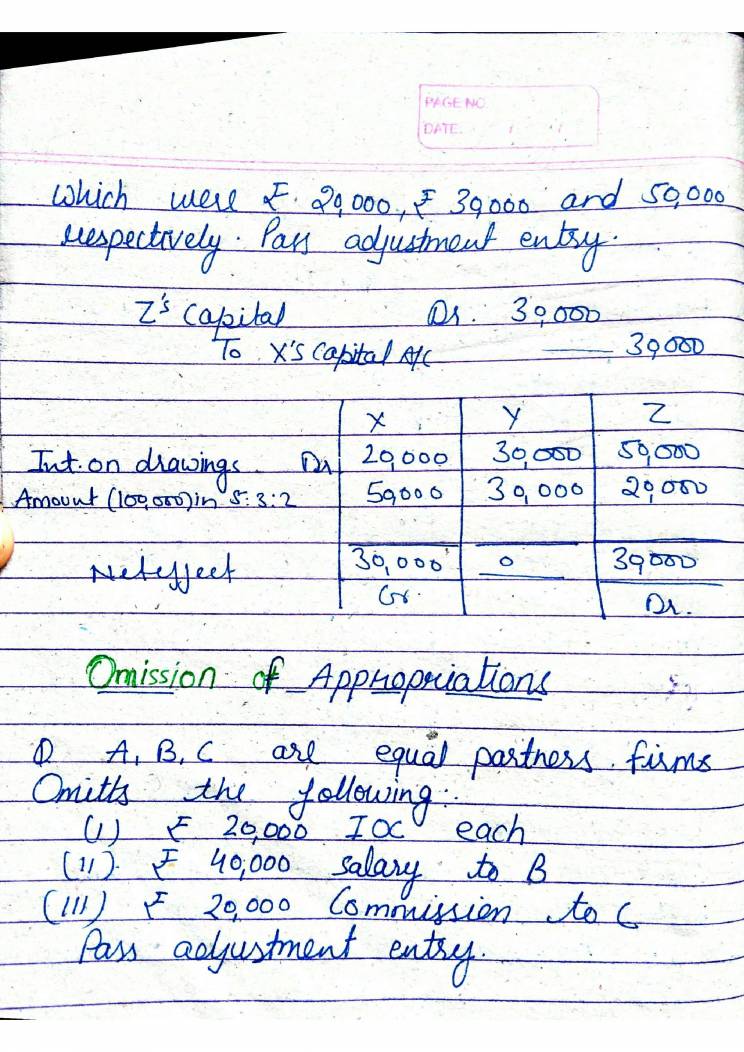 PAGE NO.
DATE: / /
which were ₹ 20,000, ₹ 30,000 and 50,000
respectively. Pass adjustment entry.
Z's Capital Dr. 30,000
To X's Capital A/C —— 30,000
X Y Z
Int. on drawings. Dr 20,000 30,000 50,000
Amount (100,000) in 5:3:2 50,000 30,000 20,000
Net effect 30,000 0 30,000
Cr. Dr.
Omission of Appropriations
Q A, B, C are equal partners. firms
Omitts the following:
(I) ₹ 20,000 IOC each
(II). ₹ 40,000 salary to B
(III) ₹ 20,000 Commission to C
Pass adjustment entry.